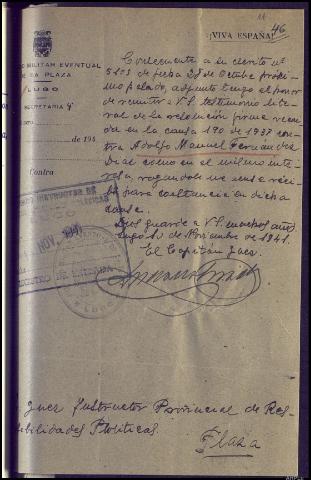 46
¡VIVA ESPAÑA!
MILITAR EVENTUAL
PLAZA
LUGO
SECRETARIA
de 194
Contra
Correspondiente a su escrito nº
5103 de fecha 28 de Octubre próxi-
mo pasado, adjunto tengo el honor
de remitir a V.S. testimonio lite-
ral de la resolución firme recaí-
da en la causa 190 de 1937 con-
tra Adolfo Manuel Fernandez
Diaz como en el mismo inte-
resa, rogandole me acuse reci-
bo para constancia en dicha
causa.
Dios guarde a V.S. muchos años
Lugo 10 de Noviembre de 1941.
El Capitán Juez.
INSTRUCTOR DE
NOV. 1941
REGISTRO DE ENTRADA
LUGO
Juez Instructor Provincial de Res-
bilidades Politicas.
Plaza